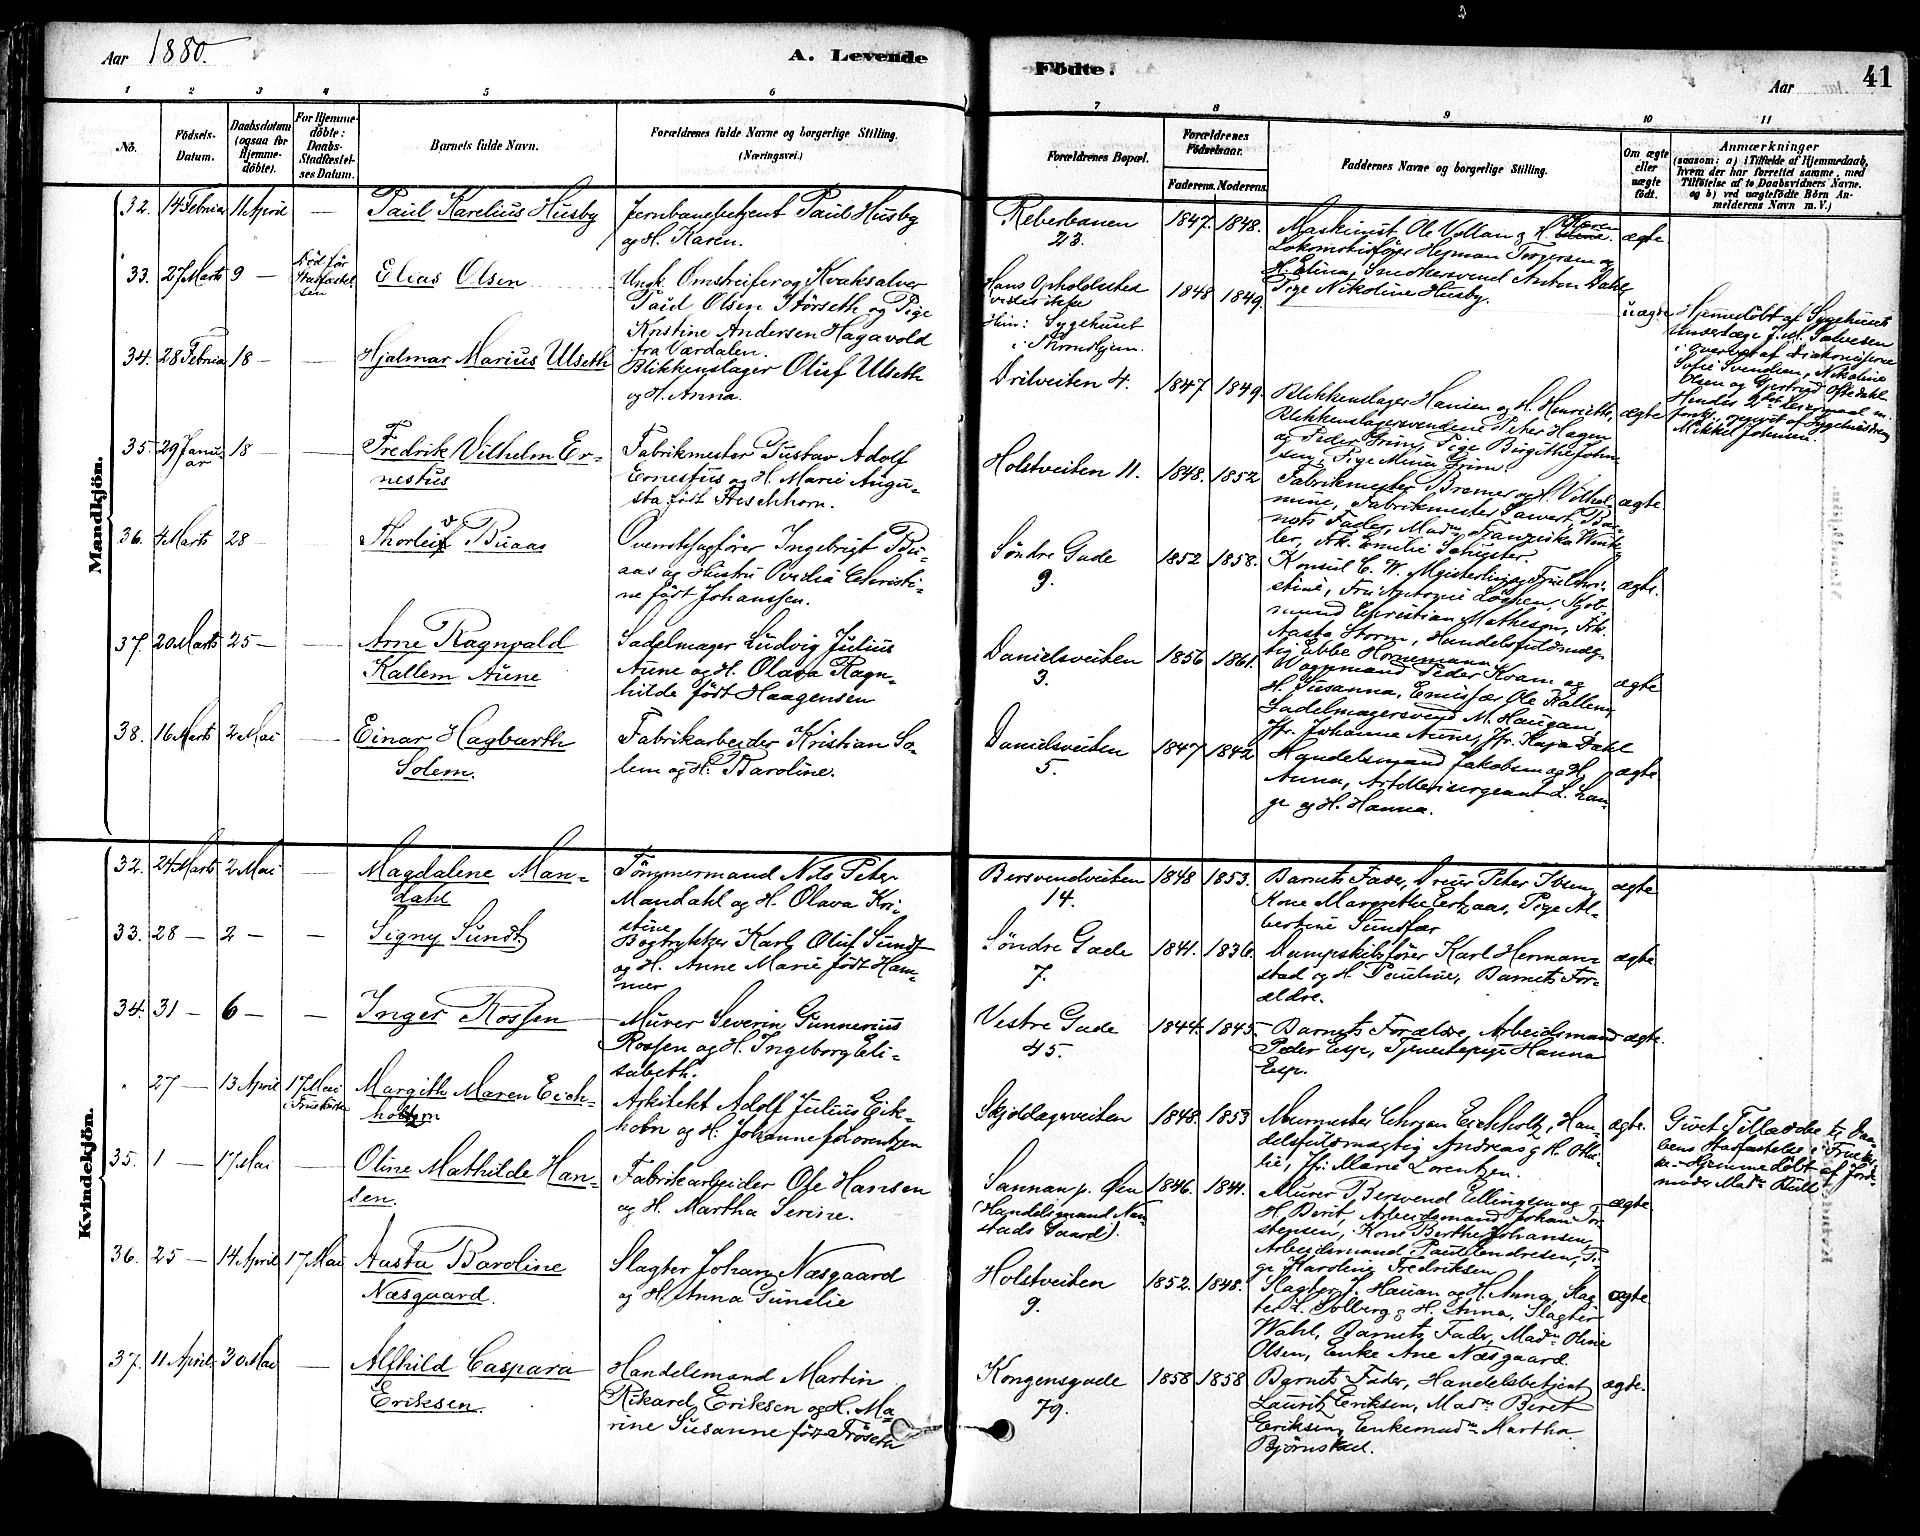 Aar 1880.
A. Levende
Födte.
Aar
41
1 2 3 4 5 6
7 8 9 10 11
No.
Födsels-
Datum.
Daabsdatum
(ogsaa for
Hjemme-
döbte).
For Hjemme-
döbte:
Daabs-
Stadfæstel-
ses Datum.
Barnets fulde Navn.
Forældrenes fulde Navne og borgerlige Stilling.
(Næringsvei.)
Forældrenes Bopæl.
Forældrenes
Födselsaar.
Faderens. Moderens.
Faddernes Navne og borgerlige Stilling.
Om ægte
eller
uægte
födt.
Anmærkninger
(saasom: a) i Tilfælde af Hjemmedaab,
hvem der har forrettet samme, med
Tilföielse af to Daabsvidners Navne.
og b) ved uægtefödte Börn An-
melderens Navn m. V.)
Mandkjön.
32. 14 Februa 11 April — Paul Karelius Husby
Jernbanebetjent Paul Husby
og H. Karen.
Reberbanen
23.
1847. 1848.
Maskinist Ole Vollan & H. Karen
Lokomotivfører Hejman Torgersen og
H. Elina, Smedkersvend Anton Dahl,
Pige Nikoline Husby.
ægte
33. 27 Marts 9 — Död før
Stadfæstel
sen
Elias Olsen
Ungk. Omstreifer og Kvaksalver
Paul Olsen Störseth og Pige
Kristine Andersen Hagavold
fra Værdalen.
Hans Opholdssted
vides ikke
Hun: Sygehuset
i Throndhjem.
1848 1849.
uægte
Hjemmedöbt af Sygehusets
Underlæge J. M. Salvesen
i overvær af Diakonisserne
Sofie Svendsen, Nikoline
Olsen og Gjertrud Oftedahl.
Hendes 2det Leiermaal m.
forskj. opgivet af Sygehusbestyrer
Mikkel Johnsen.
34. 28 Februa 18 — — Hjalmar Marius Ulseth
Blikkenslager Oluf Ulseth
og H. Anna.
Drilveiten 4.
1847 1849.
Blikkenslager Hansen og H. Henriette,
Blikkenslagersvendene Peter Hagen
og Peder Grim, Pige Birgitte John
sen, Pige Mina Grim.
ægte
35. 29 Janu-
ar 18 — — Fredrik Vilhelm Er-
nestus
Fabrikmester Gustav Adolf
Ernestus og H. Marie Augu-
sta født Heschhorn.
Holstveiten 11.
1848. 1852
Fabrikmester Bremer og H. Vilhel-
mine, Fabrikmester Sawert, Bar-
nets Fader, Madm Franziska Wink-
ler, Frk. Emilie Schuster.
ægte
36. 4 Marts 28 — — Thorleiv Buaas
Overretssagfører Ingebrigt Bu-
aas og Hustru Ovidia Christi-
ne født Johanssen.
Søndre Gade
9.
1852 1858.
Konsul C. W. Meisterlin og Frue Chri-
stine, Fru Antonie Løchen, Kjøb-
mand Christian Matheson, Frk.
Aasta Storm, Handelsfuldmæg-
tig Ebbe Hornemann
ægte.
37. 20 Marts 25 — — Arne Ragnvald
Kallem Aune
Sadelmager Ludvig Julius
Aune og H. Olava Ragn-
hilde født Haagensen
Danielsveiten
3.
1856 1861.
Vognmand Peder Kvam og
H. Susanna, Emisfær Ole Kallem,
Sadelmagersvend M. Haugan,
Jfr. Johanna Aune, Jfr. Kaja Dahl
ægte
38. 16 Marts 2 Mai — Einar Hagbarth
Solem.
Fabrikarbeider Kristian So-
lem og H. Baroline.
Danielsveiten
5.
1847 1842
Handelsmand Jakobsen og H.
Anna, Artillerisergeant L. Lan-
ge og H. Hanna.
ægte
Kvindekjön.
32. 24 Marts 2 Mai — Magdalene Man-
dahl
Tömmermand Nils Peter
Mandahl og H. Olava Kri-
stine
Bersvendveiten
14.
1848 1853.
Barnets Fader, Dreier Peter Ibsen,
Kone Margrethe Eertzaas, Pige Al-
bertine Sundfær
ægte
33. 28 — 2 — — Signy Sundt
Bogtrykker Karl Oluf Sundt
og H. Anne Marie født Ham-
mer
Søndre Gade
7.
1841. 1836.
Dampskibsfører Karl Herman-
stad og H. Pauline, Barnets For-
ældre.
ægte.
34. 31 — 6 — — Inger Rossen
Murer Severin Gunnerius
Rossen og H. Ingeborg Eli-
sabeth.
Vestre Gade
45.
1844. 1845.
Barnets Forældre, Arbeidsmand
Peder Esp, Tjenestepige Hanna
Esp.
ægte.
27 — 13 April 17 Mai
i Fruekirke
Margith Maren Eich-
holtzm
Arkitekt Adolf Julius Eik-
horn og H. Johanne f. Lorentzen
Skjoldagerveiten
1848. 1853
Murmester Chrojan Eichholtz, Han-
delsfuldmægtig Andreas og H. Otti-
lie, Jfr. Marie Lorentzen.
ægte.
Givet Tilladelse til Daa-
bens Stadfæstelse i Fruekir-
ke. Hjemmedöbt af Jord-
moder Madm Bull
35. 1 — 17 Mai Oline Mathilde Han-
sen.
Fabrikarbeider Ole Hansen
og H. Martha Serine.
Sannan p. Øen
(Handelsmand Nen-
stads Gaard).
1846. 1844.
Murer Bersvend Ellingsen og
H. Berit, Arbeidsmand Johan Tor-
stensen, Kone Berthe Johansen,
Arbeidsmand Paul Andresen, Pi-
ge Karoline Fredriksen,
ægte.
36. 25 — 14 April 17 Mai Aasta Baroline
Næsgaard.
Slagter Johan Næsgaard
og H. Anna Gunelie
Holstveiten
9.
1852. 1848.
Slagter J. Hauan og H. Anna, Slag
ter L. Solberg & H. Anna, Slagter
Wahl, Barnets Fader, Madm Oline
Olsen, Enke Ane Næsgaard
ægte.
37. 11 April 30 Mai — Alfhild Caspara
Eriksen.
Handelsmand Martin
Rikard Eriksen og H. Ma-
rine Susanne født Fröseth
Kongensgade
79.
1858 1858
Barnets Fader, Handelsbetjent
Lauritz Eriksen, Madm Beret
Eriksen, Enkemadm Martha
Björnstad.
ægte.